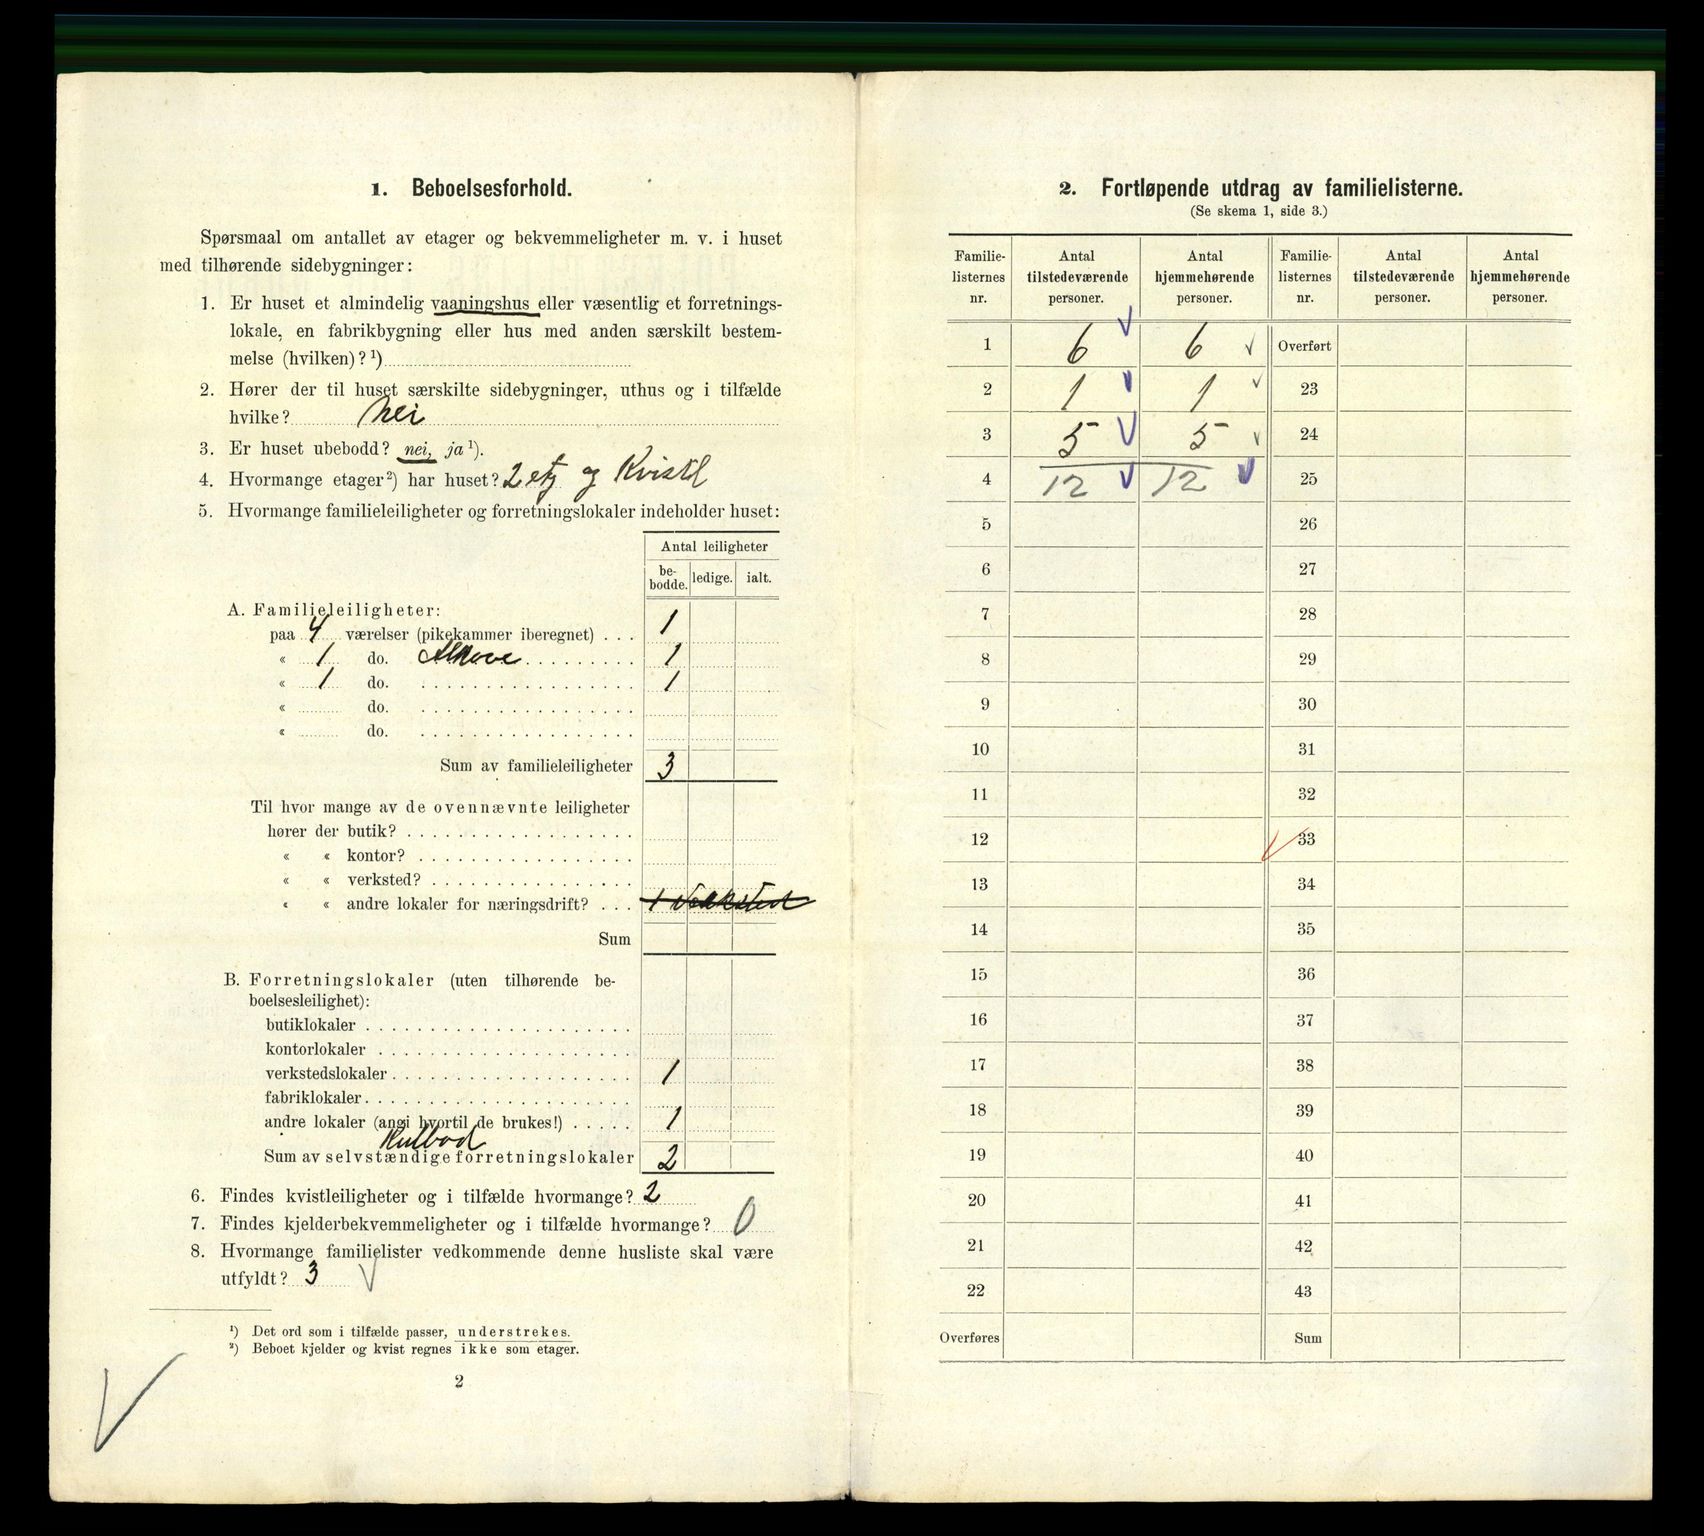 1. Beboelsesforhold.
Spørsmaal om antallet av etager og bekvemmeligheter m. v. i huset
med tilhørende sidebygninger:
1. Er huset et almindelig vaaningshus eller væsentlig et forretnings-
lokale, en fabrikbygning eller hus med anden særskilt bestem-
melse (hvilken)? ¹)
2. Hører der til huset særskilte sidebygninger, uthus og i tilfælde
hvilke? Nei
3. Er huset ubebodd? nei, ja ¹).
4. Hvormange etager ²) har huset? 2 etg og Kvist
5. Hvormange familieleiligheter og forretningslokaler indeholder huset:
Antal leiligheter
be-
bodde. ledige. ialt.
A. Familieleiligheter:
paa 4 værelser (pikekammer iberegnet) . . . 1
« 1 do. Alkove 1
« 1 do. 1
« do.
« do.
Sum av familieleiligheter 3
Til hvor mange av de ovennævnte leiligheter
hører der butik?
« « kontor?
« « verksted?
« « andre lokaler for næringsdrift? . . . 1 Verksted
Sum
B. Forretningslokaler (uten tilhørende be-
boelsesleilighet):
butiklokaler
kontorlokaler
verkstedslokaler 1
fabriklokaler
andre lokaler (angi hvortil de brukes!) 1
Kulbod
Sum av selvstændige forretningslokaler 2
6. Findes kvistleiligheter og i tilfælde hvormange? 2
7. Findes kjelderbekvemmeligheter og i tilfælde hvormange? 0
8. Hvormange familielister vedkommende denne husliste skal være
utfyldt? 3
¹) Det ord som i tilfælde passer, understrekes.
²) Beboet kjelder og kvist regnes ikke som etager.
2
2. Fortløpende utdrag av familielisterne.
(Se skema 1, side 3.)
Familie- Antal Antal Familie- Antal Antal
listernes tilstedeværende hjemmehørende listernes tilstedeværende hjemmehørende
nr. personer. personer. nr. personer. personer.
1 6 6 Overført
2 1 1 23
3 5 5 24
4 12 12 25
5 26
6 27
7 28
8 29
9 30
10 31
11 32
12 33
13 34
14 35
15 36
16 37
17 38
18 39
19 40
20 41
21 42
22 43
Overføres Sum